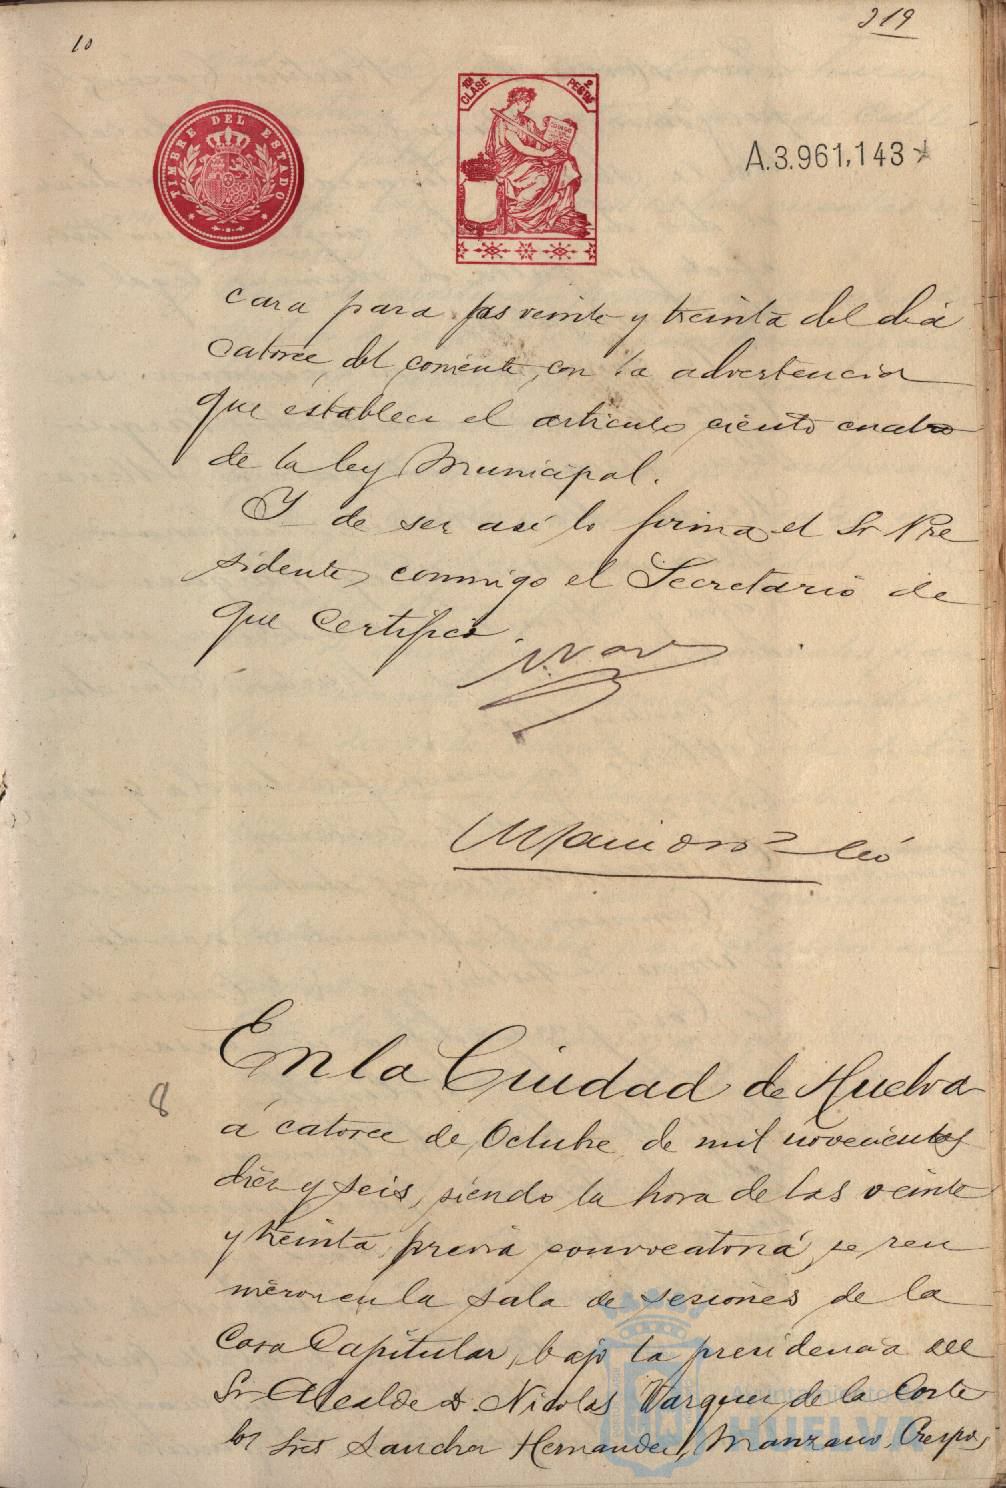 10
319
TIMBRE DEL ESTADO
10ª CLASE
2 PESETAS
A.3.961,143
cara para las veinte y treinta del dia
catorce del corriente, con la advertencia
que establece el articulo ciento cuatro
de la ley Municipal.
Y de ser asi lo firma el Sr Pre
sidente, conmigo el Secretario de
que certifico.
8
En la Ciudad de Huelva
á catorce de Octubre de mil novecientos
diez y seis, siendo la hora de las veinte
y treinta, previa convocatoria, se reu
nieron en la sala de sesiones de la
Casa Capitular, bajo la presidencia del
Sr Alcalde D. Nicolas Vazquez de la Corte
los Sres Sanchez Hernandez, Manzano, Crespo,
Ayuntamiento
HUELVA